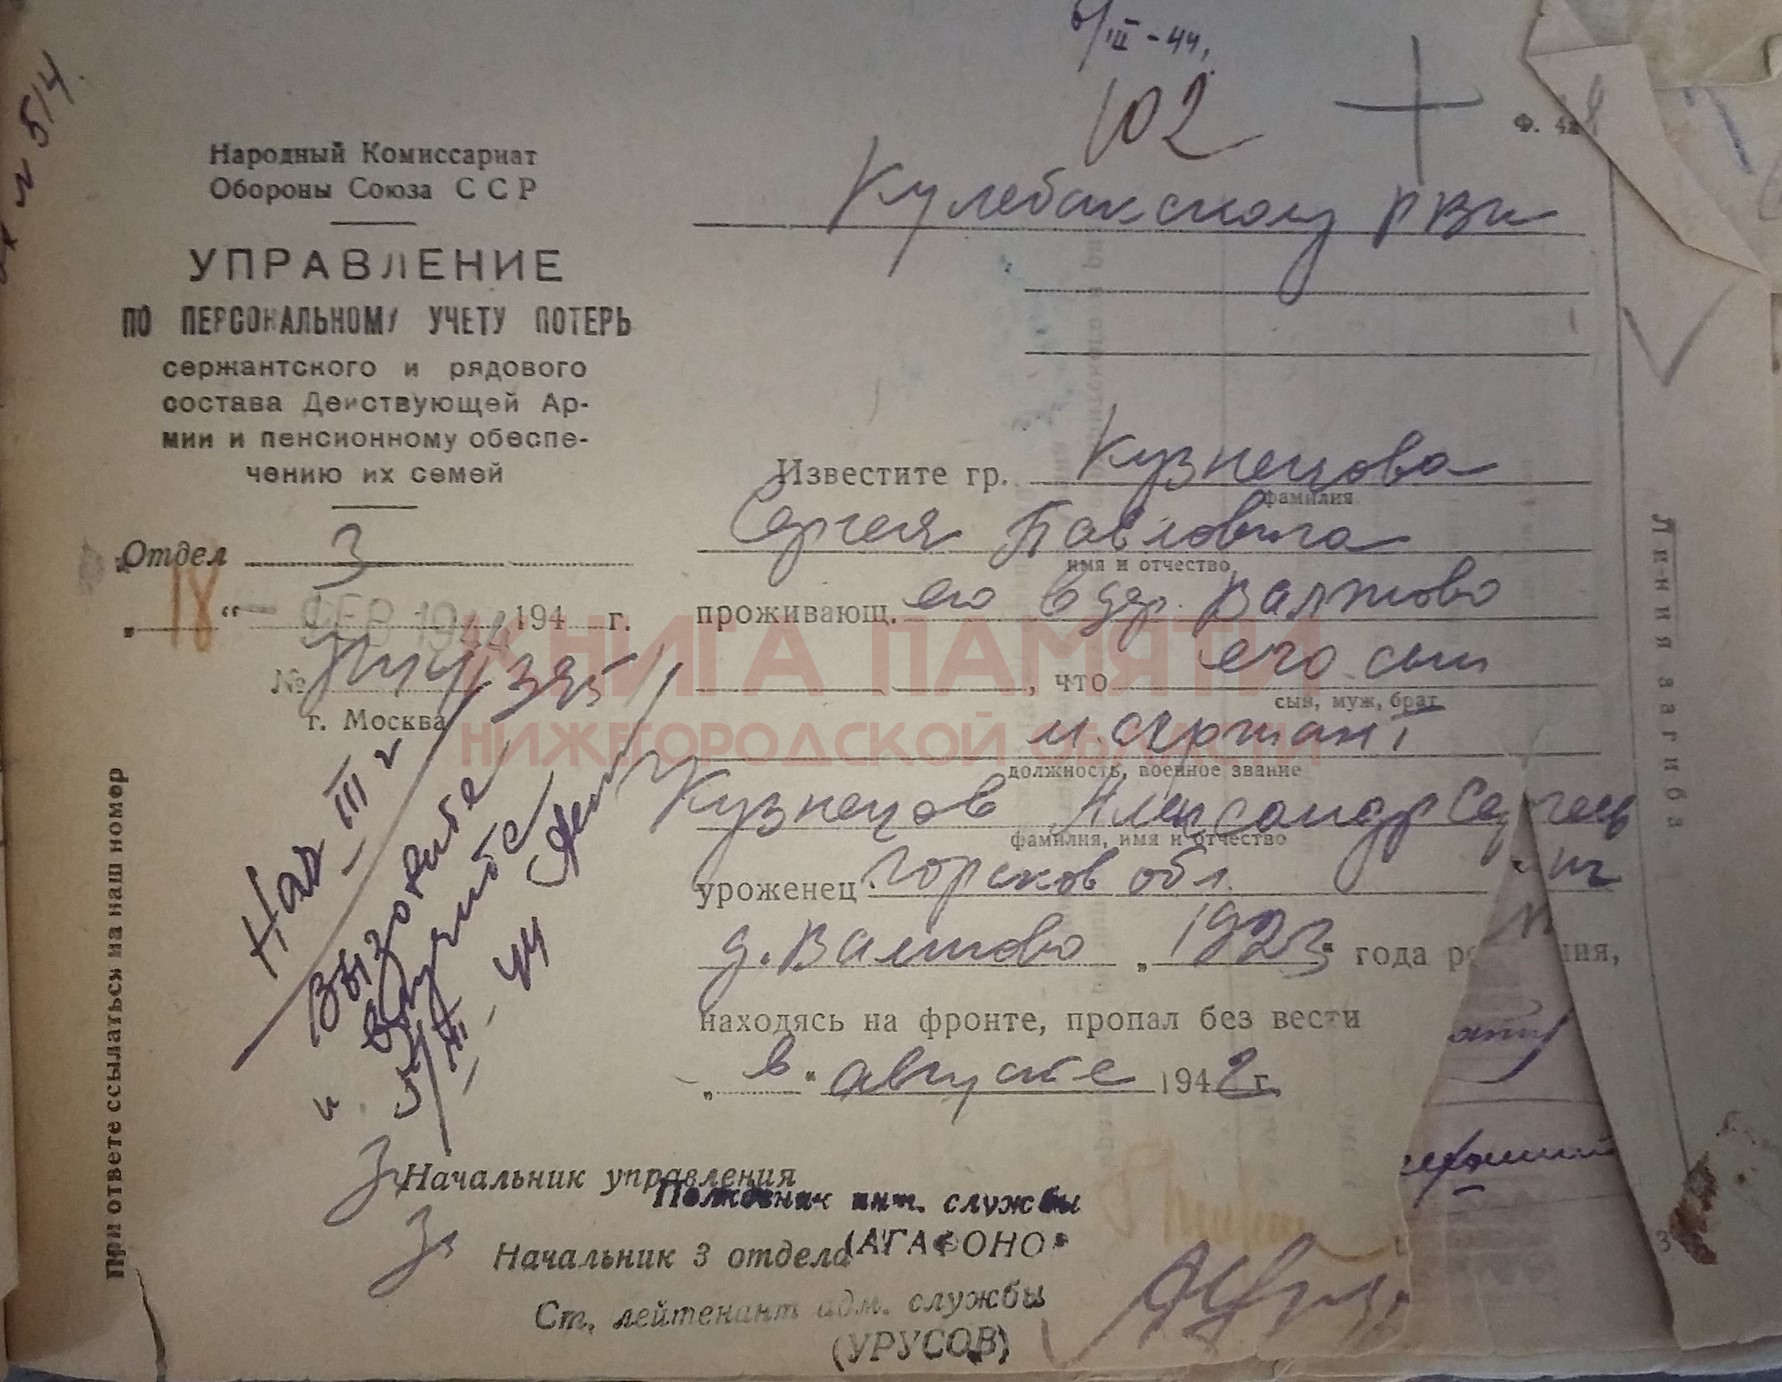 6/III-44.
102
Ф. 4а
№ 514.
Народный Комиссариат
Обороны Союза ССР
УПРАВЛЕНИЕ
ПО ПЕРСОНАЛЬНОМУ УЧЕТУ ПОТЕРЬ
сержантского и рядового
состава Действующей Ар-
мии и пенсионному обеспе-
чению их семей
Отдел 3
„18“ ФЕВ 1944 194 г.
№
г. Москва
Кулебакскому РВК
Известите гр. Кузнецова
фамилия
Сергея Павловича
имя и отчество
проживающ. его в дер. Валтово
, что его сын
сын, муж, брат
м. сержант
должность, военное звание
Кузнецов Александр Сергеев
фамилия, имя и отчество
ич
уроженец Горьков обл.
д. Валтово „1923 года рождения,
находясь на фронте, пропал без вести
„в“ августе 1942 г.
Нач III ч
вызовите
и вручите
5/III-44
Начальник управления
Полковник инт. службы
(АГАФОНО
Начальник 3 отдела
Ст. лейтенант адм. службы
(УРУСОВ)
При ответе ссылаться на наш номер
Линия загиба
КНИГА ПАМЯТИ
НИЖЕГОРОДСКОЙ ОБЛАСТИ